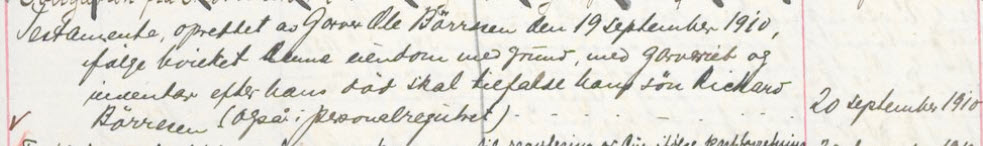 Testamente, oprettet av Garver Ole Börresen den 19 september 1910,
ifölge hvilket denne eiendom med grund, med garveriet og
inventar efter hans död skal tilfalde hans sön Richard
Börresen (også i personalregistret) . . . . . . . 20 september 1910